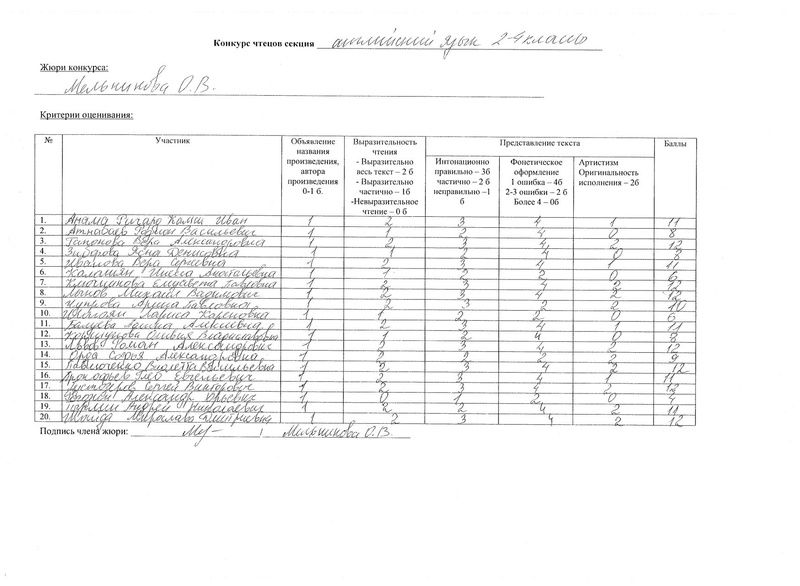 Конкурс чтецов секция английский язык 2-4 классы
Жюри конкурса:
Мельникова О.В.
Критерии оценивания:
№ Участник Объявление названия произведения, автора произведения 0-1 б. Выразительность чтения - Выразительно весь текст – 2 б - Выразительно частично – 1б -Невыразительное чтение – 0 б Представление текста Баллы
Интонационно правильно – 3б частично – 2 б неправильно –1 б Фонетическое оформление 1 ошибка – 4б 2-3 ошибки – 2 б Более 4 – 0б Артистизм Оригинальность исполнения – 2б
1. Ричард Иван 1 2 3 4 1 11
2. Васильевич 1 1 2 4 0 8
3. Вера Александровна 1 2 3 4 2 12
4. Яна Денисовна 1 1 2 4 0 8
5. Иванова Вера Сергеевна 1 2 3 4 1 11
6. Анатольевна 1 1 2 2 0 6
7. Елизавета Павловна 1 2 3 4 2 12
8. Михаил Вадимович 1 2 3 4 2 12
9. Арина Павловна 1 2 3 2 2 10
10. Лариса Кареновна 1 1 2 2 0 6
11. Алексеевна 1 2 3 4 1 11
12. 1 1 2 4 0 8
13. Роман Александрович 1 2 3 4 2 12
14. Софья Александровна 1 2 2 2 2 9
15. Павлюченко Виолетта Васильевна 1 2 3 4 2 12
16. Прокофьев Глеб Евгеньевич 1 2 3 4 1 11
17. Сергей Викторович 1 2 3 4 2 12
18. Александр Юрьевич 1 0 1 2 0 4
19. Андрей Николаевич 1 2 2 4 2 11
20. Мирослава Дмитриевна 1 2 3 4 2 12
Подпись члена жюри: / Мельникова О.В.